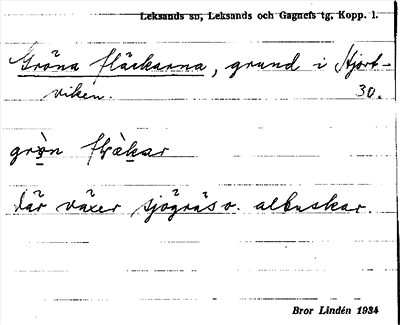 Leksands sn, Leksands och Gagnefs tg, Kopp. l.
Gröna fläckarna, grund i Hjort-
viken. 30.
där växer sjögräs o. albuskar.
Bror Lindén 1934